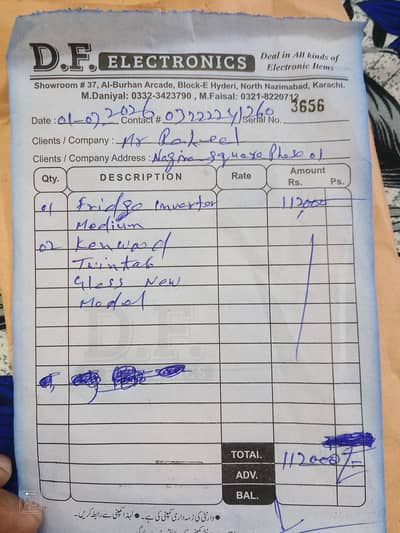 D.F. ELECTRONICS
Deal in All kinds of
Electronic Items
Showroom # 37, Al-Burhan Arcade, Block-E Hyderi, North Nazimabad, Karachi.
M.Daniyal: 0332-3423790 , M.Faisal: 0321-8220712
Date : 01-07-2026 Contact # 03222241260 Serial No. 3656
Clients / Company : Mr Raheel
Clients / Company Address : Nagina Square Phase 01
Qty. DESCRIPTION Rate Amount
Rs. Ps.
01 Fridge Invertor 112000
Medium
02 Kenword
Twintab
Glass New
Model
TOTAL. 112000/-
ADV.
BAL.